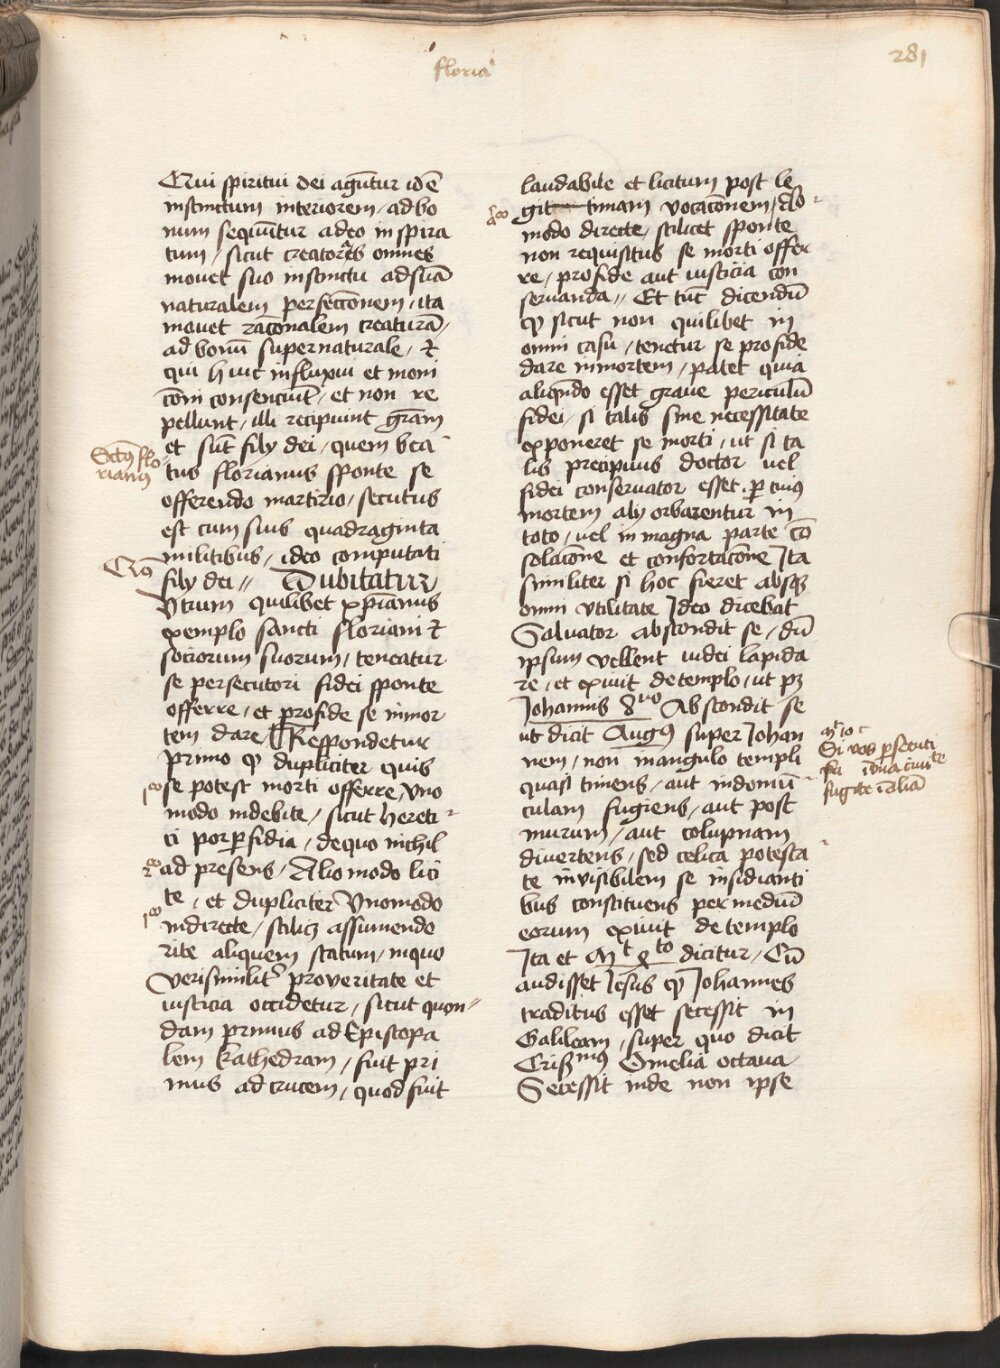 floria
281
Qui spiritui dei agūtur id ē
instinctum interiorem / ad bo
num sequūtur adeo inspira
tum / sicut creator oēs omnes
mouet suo instinctu ad suā
naturalem perfectōnem / ita
mouet racōnalem creaturā /
ad bonū supernaturale / et
qui huic influxui et moni
cōni consenciūt / et non re
pellunt / illi recipiunt grām
et sūt filij dei / quem bea
tus florianus sponte se
offerendo martirio / secutus
est cum suis quadraginta
militibus / ideo computati
filij dei // Dubitatur /
Vtrum quilibet xp̄ianus
exemplo sancti floriani et
sociorum suorum / teneatur
se persecutori fidei sponte
offerre / et profide se inmor
tem dare / Respondetur
primo ꝙ dupliciter quis
se potest morti offerre / vno
modo indebite / sicut hereti
ci por perfidia / de quo nichil
ad presens / Alio modo lici
te / et dupliciter Vnomodo
indirecte / scilicꝫ assumendo
rite aliquem statum / inquo
verisimilit proveritate et
iusticia occidetur / sicut quon
dam primus ad Episcopa
lem kathedram / fuit pri
mus ad crucem / quod fuit
Sctūs flo
rianus
Qº
laudabile et licitum post le
git timam vocacōnem / Alo
modo directe / scilicet sponte
non requisitus se morti offer
re / profide aut iusticia con
seruanda // Et tūc dicendū
ꝙ sicut non quilibet in
omni casu / tenetur se profide
dare inmortem / patet quia
aliqn̄do esset graue periculū
fidei / si talis sine necessitate
exponeret se morti / ut si ta
lis precipuus doctor uel
fidei conseruator esset / per cuiꝯ
mortem alij orbarentur in
toto / uel in magna parte cō
solacōne et confortacōne Ita
similiter si hoc fieret absqꝫ
omni vtilitate Ideo dicebat
Saluator abscondit se / dū
ipsum vellent iudei lapida
re / et exiuit de templo / ut pꝫ
Johannis 8uo Abscondit se
ut dicit Augꝯ super Johan
nem / non in angulo templi
quasi timens / aut indomū
culam fugiens / aut post
murum / aut columpnam
divertens / sed celica potesta
te invisibilem se insidianti
bus constituens per mediū
eorum exiuit de templo
Ita et Mt 4to dicitur / Cū
audisset Jesus ꝙ Johannes
traditus esset secessit in
Galileam / super quo dicit
Crißmus Omelia octaua
Secessit inde non ipse
mt 10 c
Si vos persecuti
fu ī vna ciuite
fugite ī aliā